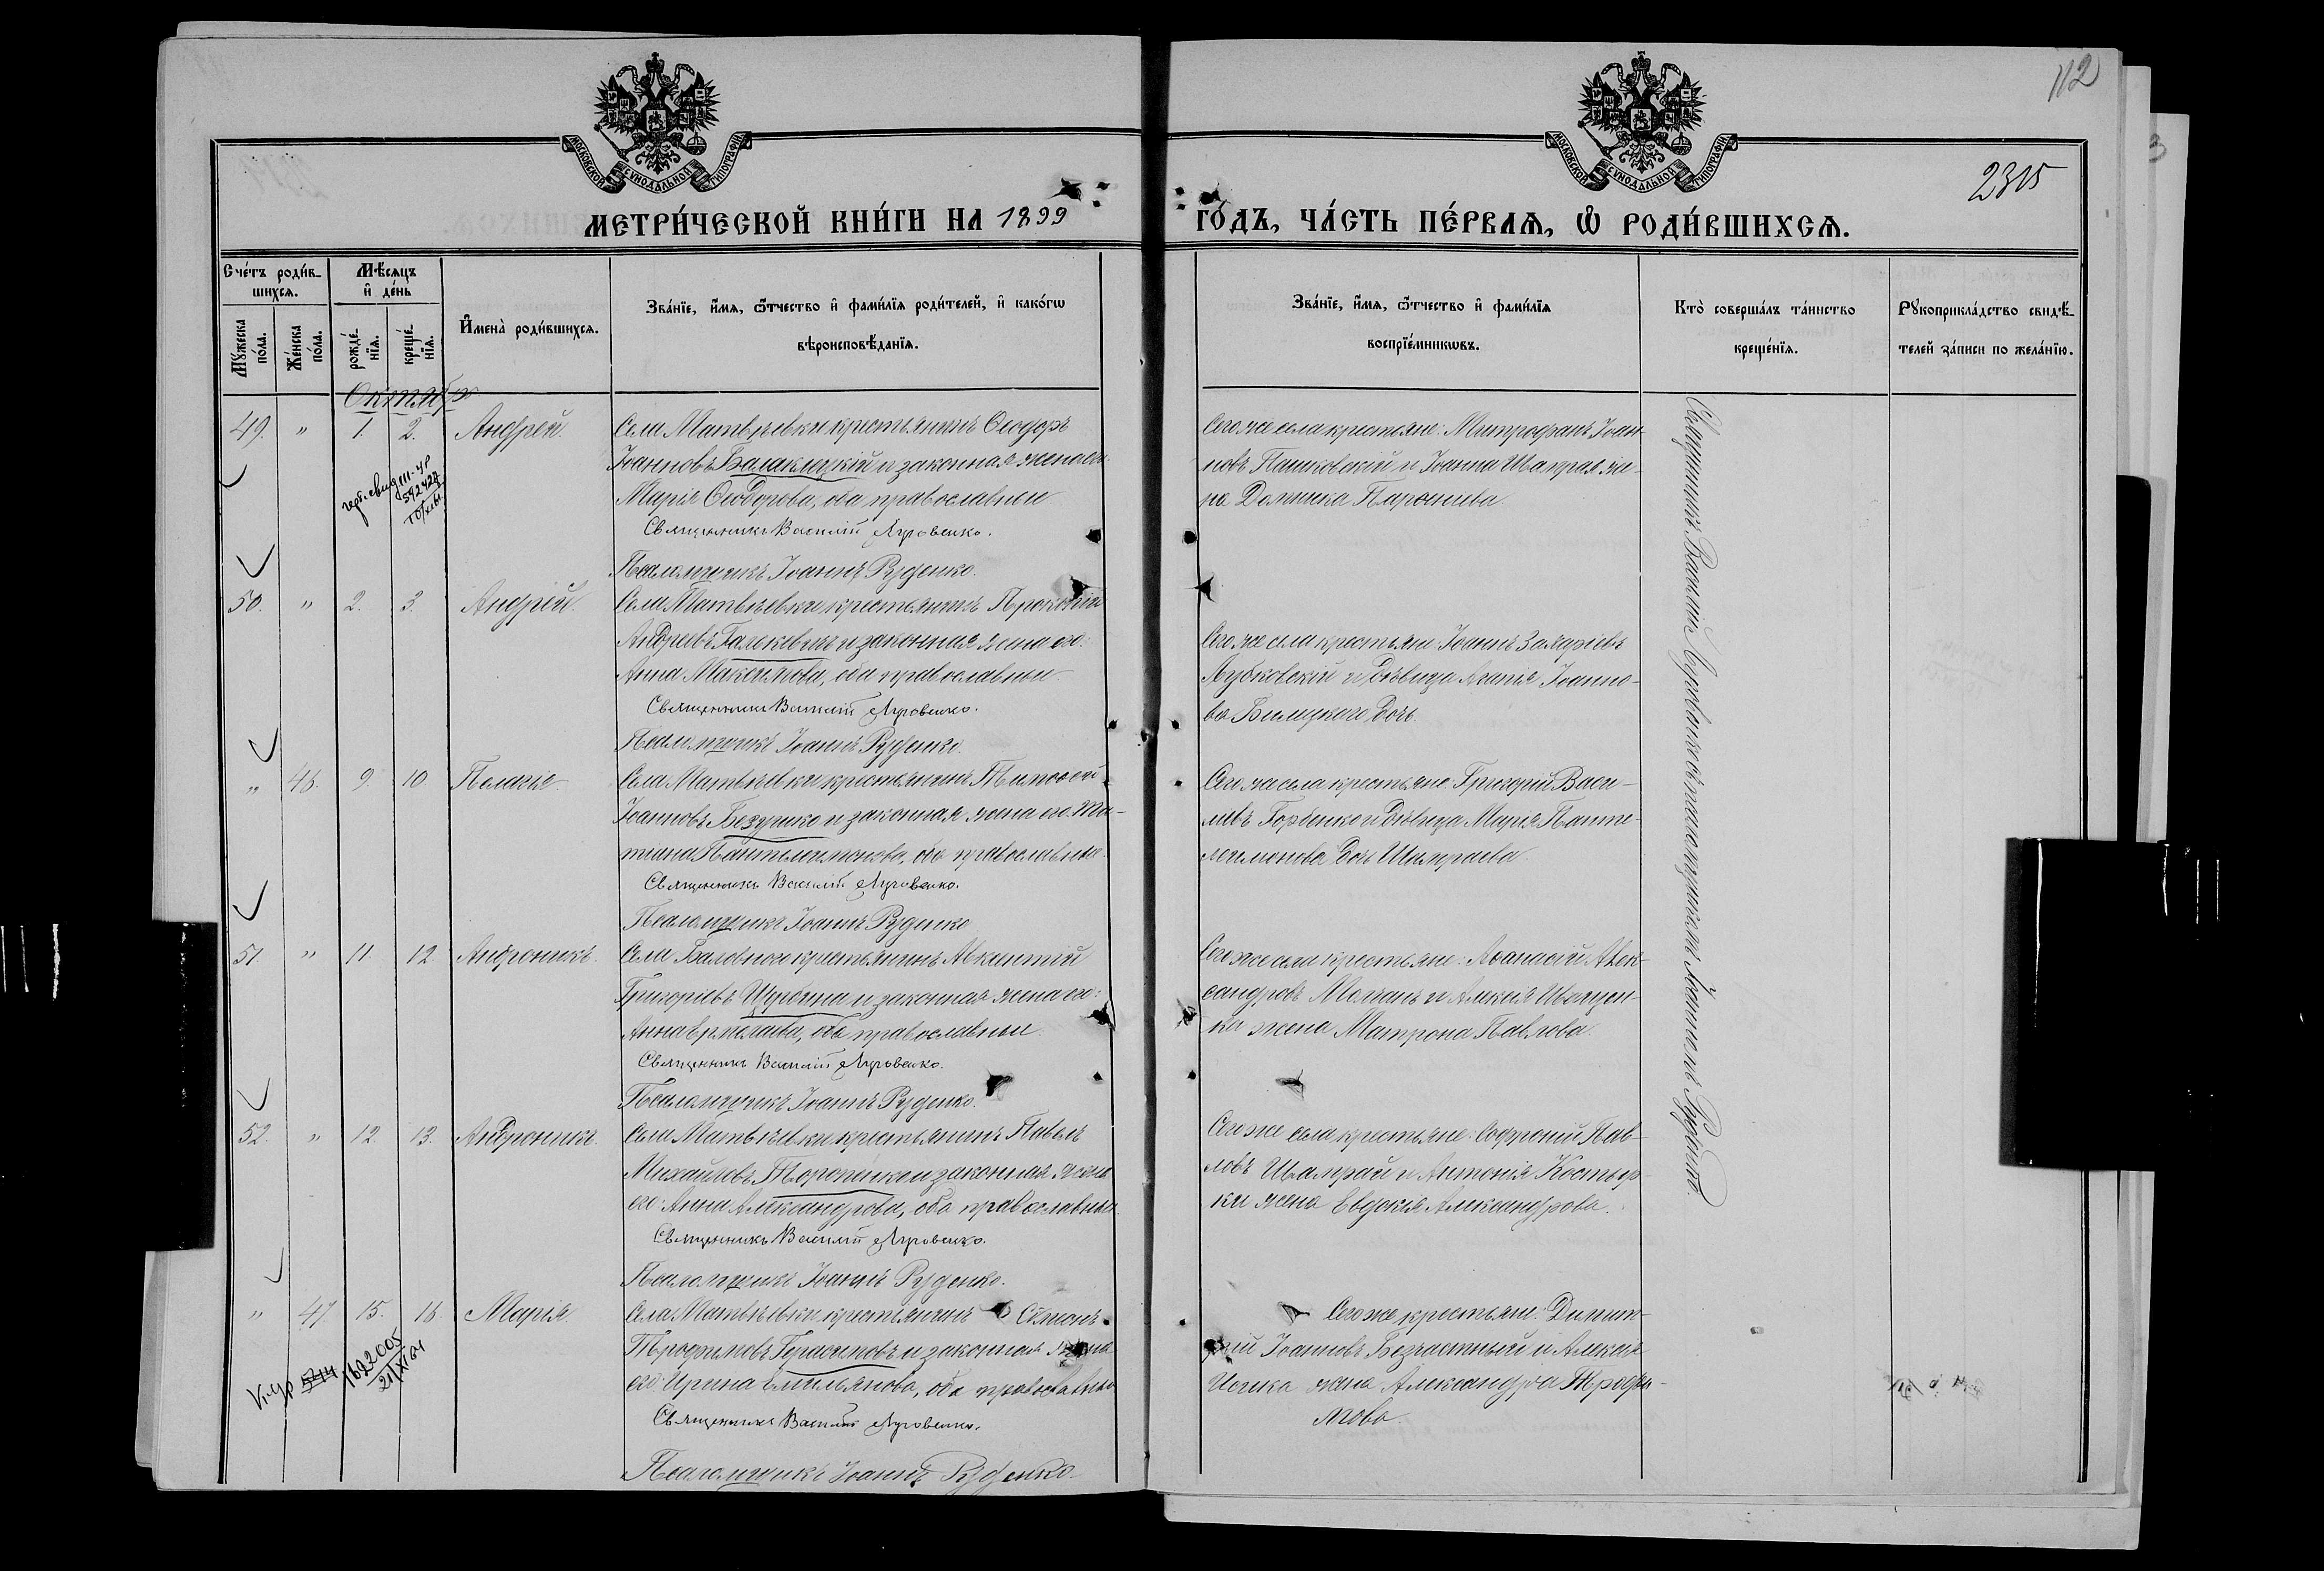 112
2315
МОСКОВСКОЙ СУНОДАЛЬНОЙ ТИПОГРАФІИ
МОСКОВСКОЙ СУНОДАЛЬНОЙ ТИПОГРАФІИ
МЕТРИ́ЧЕСКОЙ КНИ́ГИ НА 1899
ГО́ДЪ, ЧА́СТЬ ПЕ́РВАѦ, Ѽ РОДИ́ВШИХСѦ.
Сче́тъ роди́в-
шихсѧ.
Мѣ́сѧцъ
и҆ де́нь
Мꙋ́жеска по́ла.
Же́нска по́ла.
рожде́-
нїѧ.
креще́-
нїѧ.
И҆мена̀ роди́вшихсѧ.
Зва́нїе, и҆́мѧ, ѻ҆́тчество и҆ фами́лїѧ роди́телей, и҆ како́гѡ
вѣроисповѣ́данїѧ.
Зва́нїе, и҆́мѧ, ѻ҆́тчество и҆ фами́лїѧ
воспрїе́мникѡвъ.
Кто̀ соверша́лъ та́инство
креще́нїѧ.
Рꙋкоприкла́дство свидѣ́-
телей за́писи по жела́нїю.
Октябрь
49. " 1. 2. Андрей.
Села Матвѣевки крестьянинъ Ѳеодоръ
Іоанновъ Балаклицкій и законная жена его
Марія Ѳеодорова, оба православные
Священникъ Василій Луговенко.
Псаломщикъ Іоаннъ Руденко.
Того же села крестьяне: Митрофанъ Іоан-
новъ Пашковскій и Іоанна Шапрая же-
на Домника Парфеніева.
50. " 2. 3. Андрей.
Села Матвѣевки крестьянинъ Прокопій
Андреевъ Галскевичъ и законная жена его:
Анна Максимова, оба православные
Священникъ Василій Луговенко.
Псаломщикъ Іоаннъ Руденко.
Того же села крестьяне: Іоаннъ Захаріевъ
Лубковскій и дѣвица Агапія Іоанно-
ва Билецкаго дочь.
" 46. 9. 10. Пелагія
Села Матвѣевки крестьянинъ Тимоѳей
Іоанновъ Безушко и законная жена его Та-
тиана Пантелеимонова, оба православные.
Священникъ Василій Луговенко.
Псаломщикъ Іоаннъ Руденко
Того же села крестьяне: Григорій Васи-
ліевъ Горбенко и дѣвица Марія Панте-
леимонова дочь Шапраева.
51 " 11. 12. Андроникъ.
Села Баловного крестьянинъ Авксентій
Григоріевъ Щербина и законная жена его:
Анна Ермолаева, оба православные.
Священникъ Василій Луговенко.
Псаломщикъ Іоаннъ Руденко.
Того же села крестьяне: Аѳанасій Алек-
сандровъ Молчанъ и Алексія Иващен-
ки жена Матрона Павлова.
52. " 12. 13. Андроникъ.
Села Матвѣевки крестьянинъ Павелъ
Михайловъ Торопенко и законная жена
его: Анна Александрова, оба православные.
Священникъ Василій Луговенко.
Псаломщикъ Іоаннъ Руденко.
Того же села крестьяне: Софроній Пав-
ловъ Шапрай и Антонія Костыр-
ки жена Евдокія Александрова.
" 47. 15. 16. Марія.
Села Матвѣевки крестьянинъ Сѵмеонъ
Трофимовъ Герасимовъ и законная жена
его: Ирина Емильянова, оба православные
Священникъ Василій Луговенко.
Псаломщикъ Іоаннъ Руденко.
Того же крестьяне: Димит-
рій Іоанновъ Безчастный и Алексія
жена Александра Трофи-
мова.
Священникъ Василій Луговенко съ псаломщикомъ Іоанномъ Руденко.